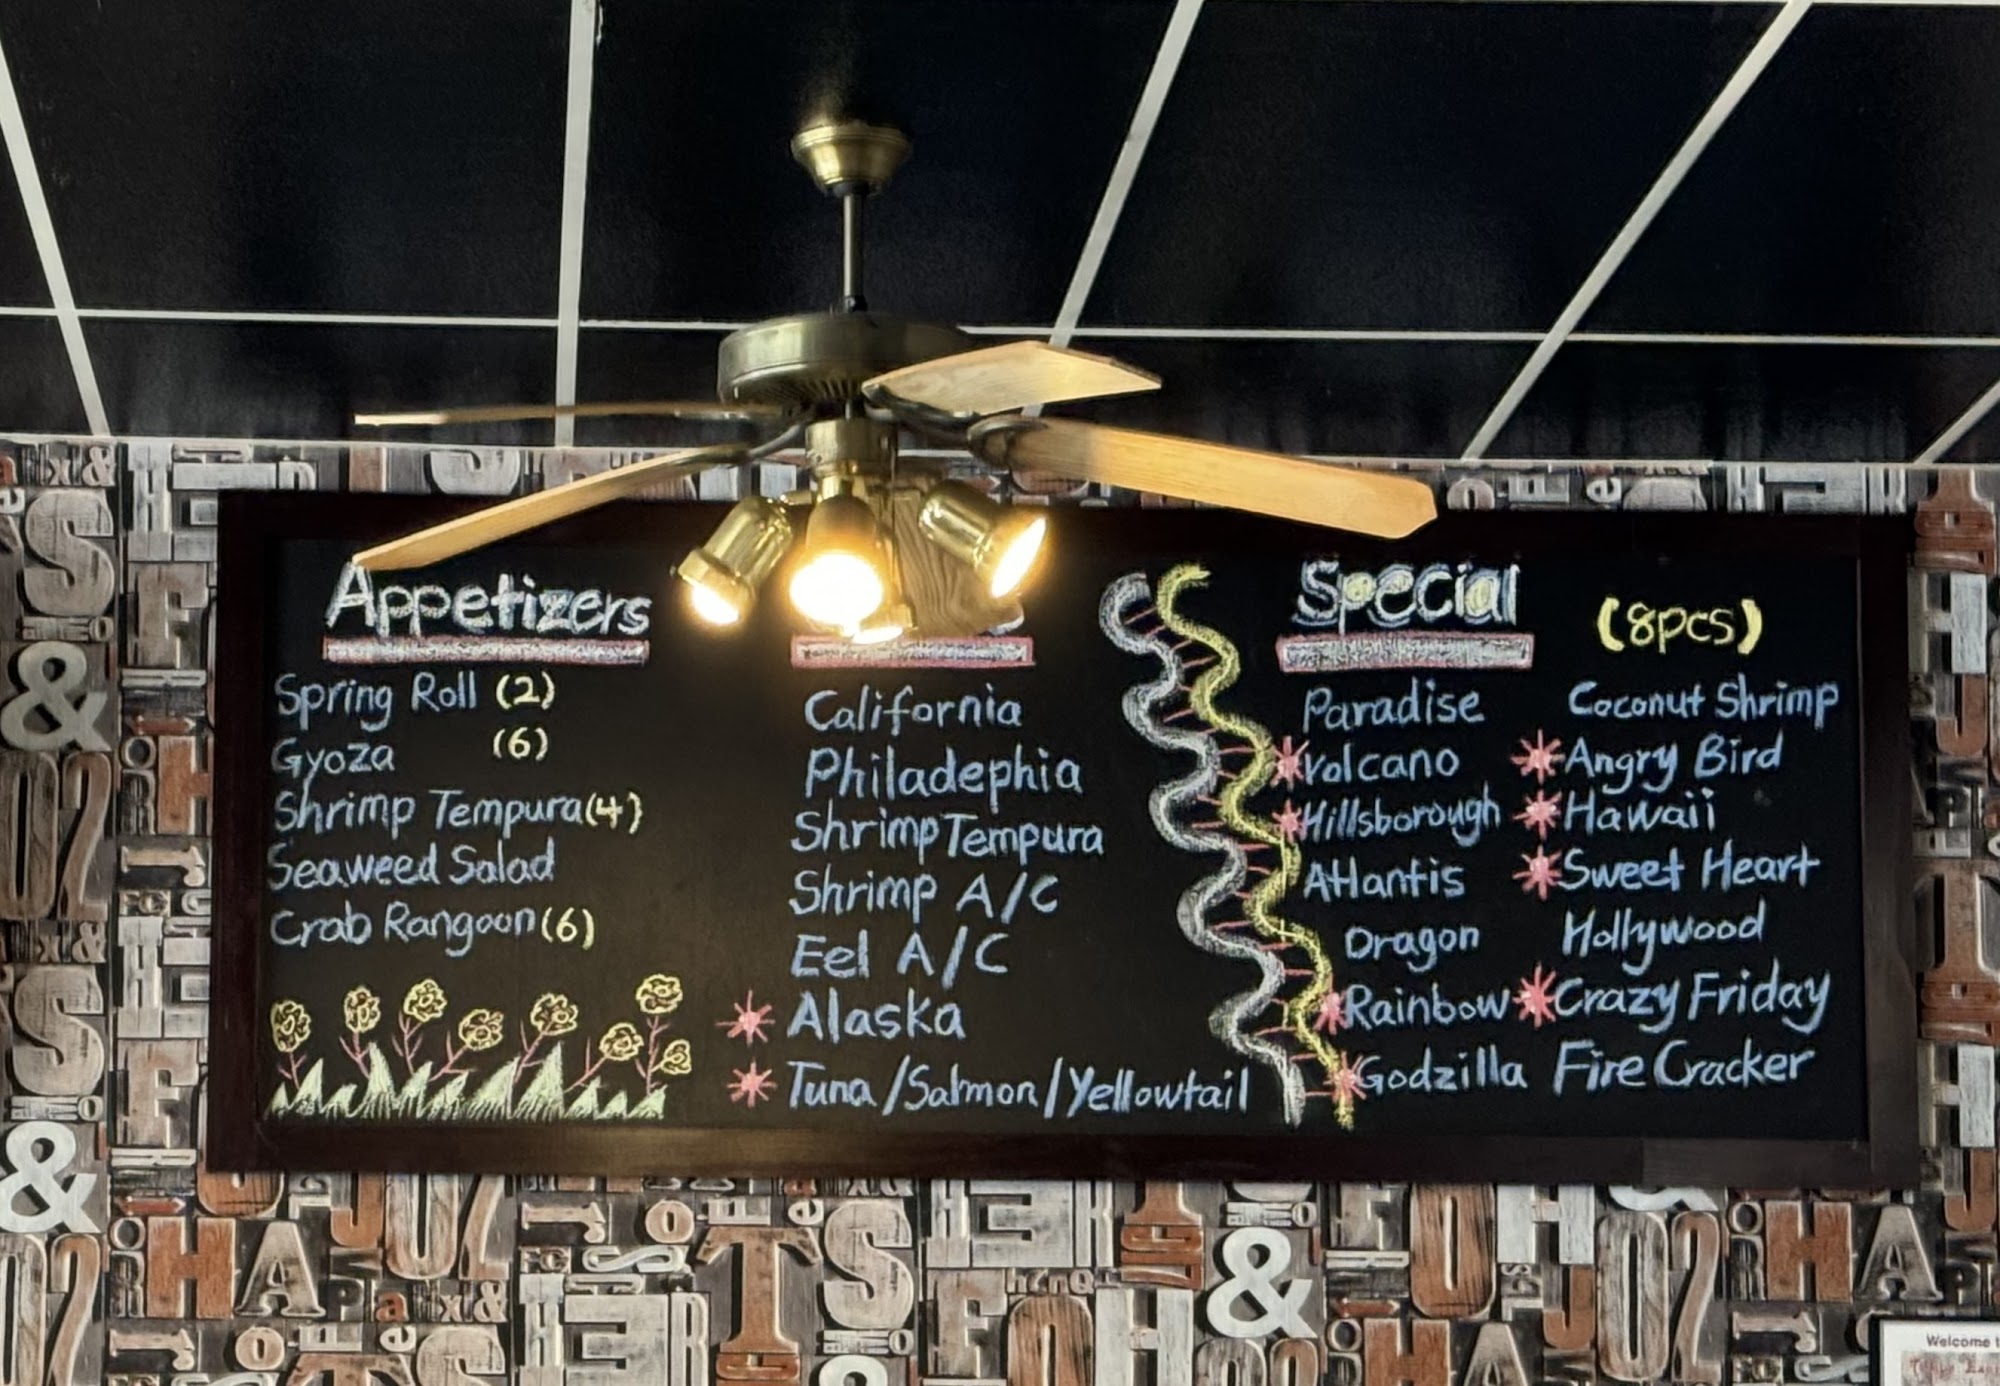 Appetizers
Spring Roll (2)
Gyoza (6)
Shrimp Tempura (4)
Seaweed Salad
Crab Rangoon (6)
California
Philadephia
Shrimp Tempura
Shrimp A/C
Eel A/C
Alaska
Tuna/Salmon/Yellowtail
Special (8pcs)
Paradise
Volcano
Hillsborough
Atlantis
Dragon
Rainbow
Godzilla
Coconut Shrimp
Angry Bird
Hawaii
Sweet Heart
Hollywood
Crazy Friday
Fire Cracker
Welcome